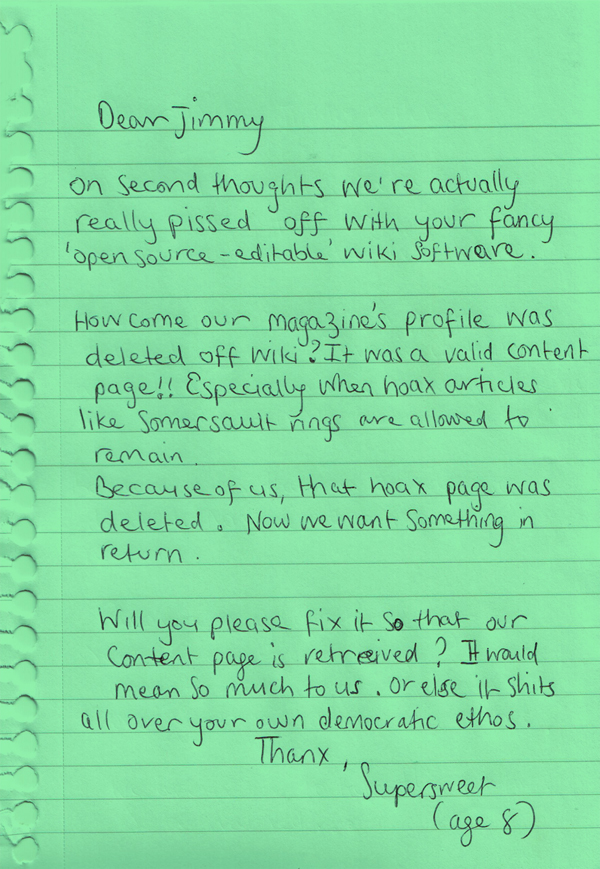 Dear Jimmy
On second thoughts we're actually
really pissed off with your fancy
'open source-editable' wiki software.
How come our magazine's profile was
deleted off wiki? It was a valid content
page!! Especially when hoax articles
like Somersault rings are allowed to
remain.
Because of us, that hoax page was
deleted. Now we want something in
return.
Will you please fix it so that our
content page is retreived? It would
mean so much to us. Or else it shits
all over your own democratic ethos.
Thanx,
Supersweet
(age 8)